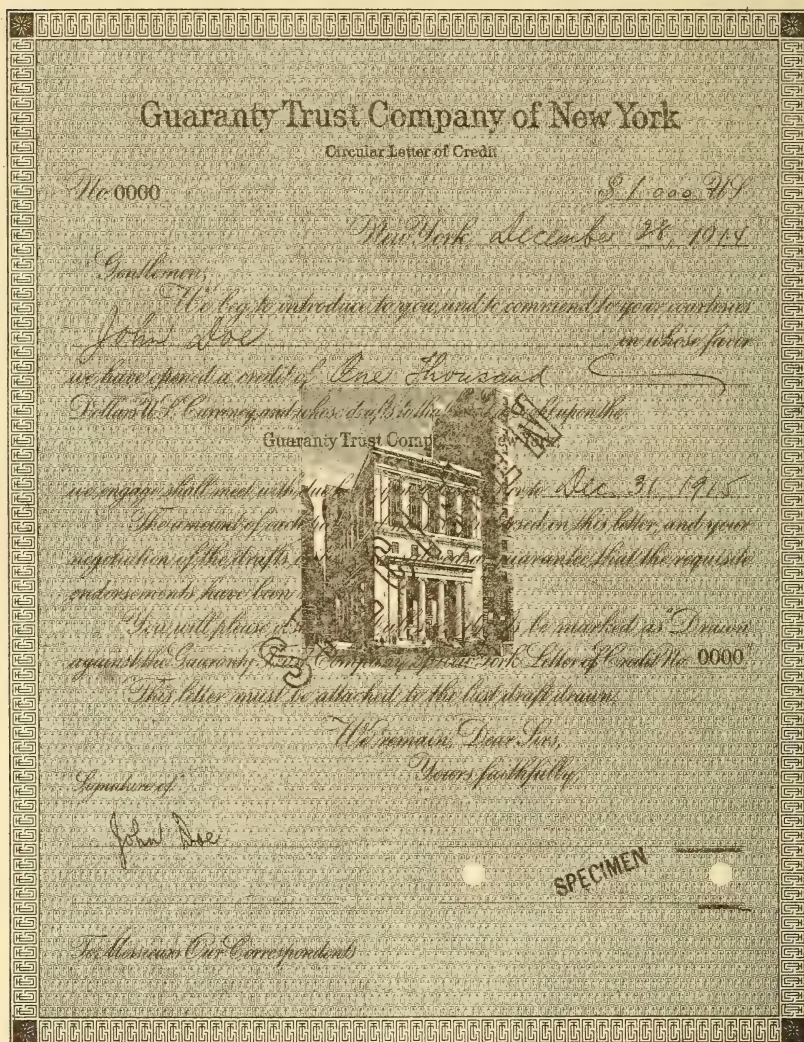 Guaranty Trust Company of New York
Circular Letter of Credit
No. 0000 $1,000 US
New York December 28, 1914
Gentlemen,
We beg to introduce to you, and to commend to your courtesies
John Doe in whose favor
we have opened a credit of One Thousand
Dollars U.S. Currency, and whose drafts to that upon the
Guaranty Trust Comp New York
we engage shall meet with due to Dec. 31 1915
The amount of each on this letter, and your
negotiation of the drafts guarantee that the requisite
endorsements have been
You will please be marked as "Drawn
against the Guaranty Trust Company of New York Letter of Credit No. 0000"
This letter must be attached to the last draft drawn.
We remain, Dear Sirs,
Yours faithfully,
Signature of
John Doe
SPECIMEN
SPECIMEN
To Messieurs Our Correspondents